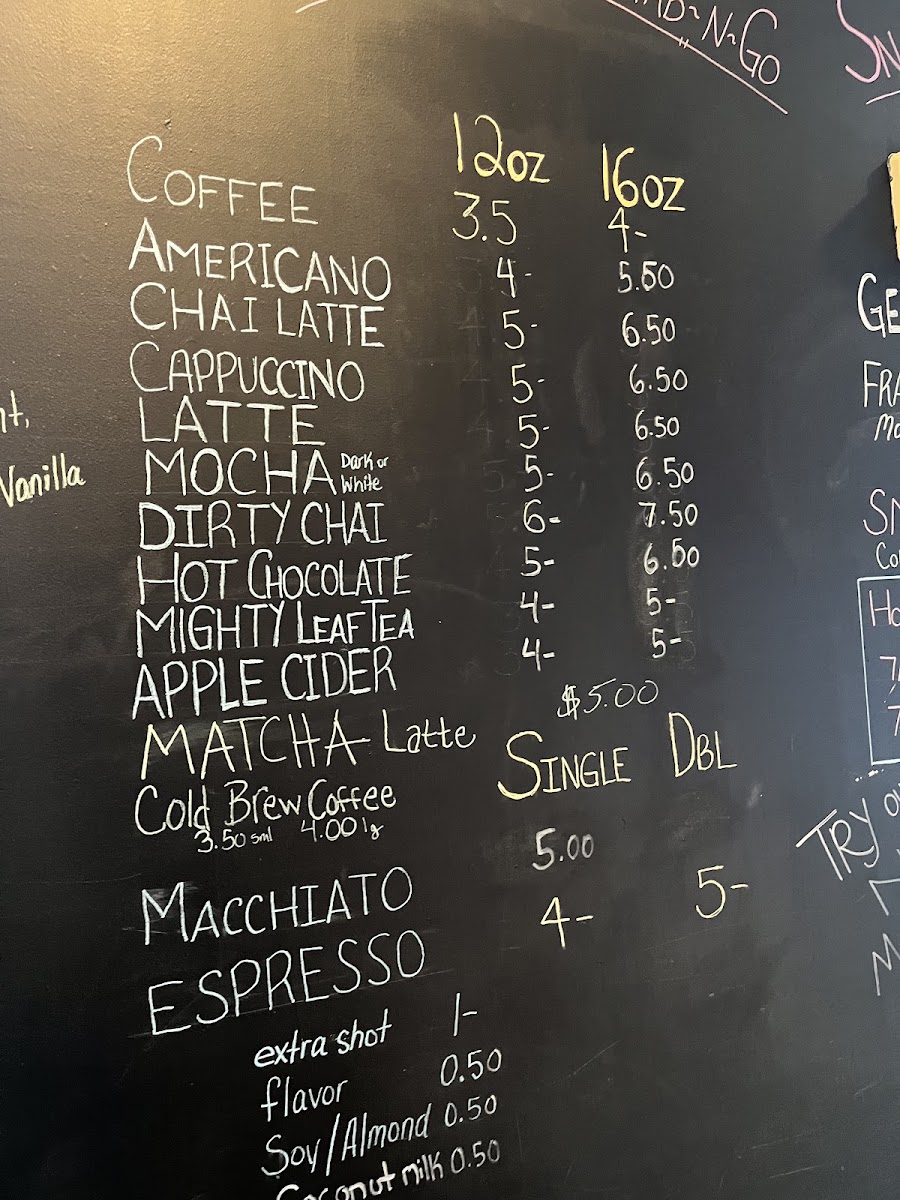 12oz 16oz
COFFEE 3.5 4-
AMERICANO 4- 5.50
CHAI LATTE 5- 6.50
CAPPUCCINO 5- 6.50
LATTE 5- 6.50
MOCHA Dark or White 5- 6.50
DIRTY CHAI 6- 7.50
HOT CHOCOLATE 5- 6.50
MIGHTY LEAF TEA 4- 5-
APPLE CIDER 4- 5-
MATCHA Latte $5.00
SINGLE DBL
Cold Brew Coffee
3.50 sml 4.00 lg
MACCHIATO 5.00
ESPRESSO 4- 5-
extra shot 1-
flavor 0.50
Soy/Almond 0.50
Coconut milk 0.50
N~GO
Vanilla
TRY